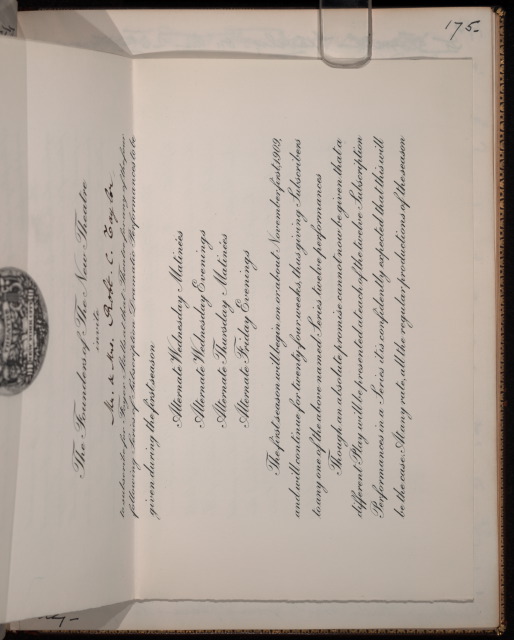 175.
The Founders of The New Theatre
invite
Mr. & Mrs. Robt. C.
to subscribe for
following Series of Subscription Dramatic Performances to be
given during the first season
Alternate Wednesday Matinées
Alternate Wednesday Evenings
Alternate Thursday Matinées
Alternate Friday Evenings
The first season will begin on or about November first, 1909,
and will continue for twenty four weeks, thus giving Subscribers
to any one of the above named Series twelve performances
Though an absolute promise cannot now be given that a
different Play will be presented at each of the twelve Subscription
Performances in a Series it is confidently expected that this will
be the case. At any rate, all the regular productions of the season